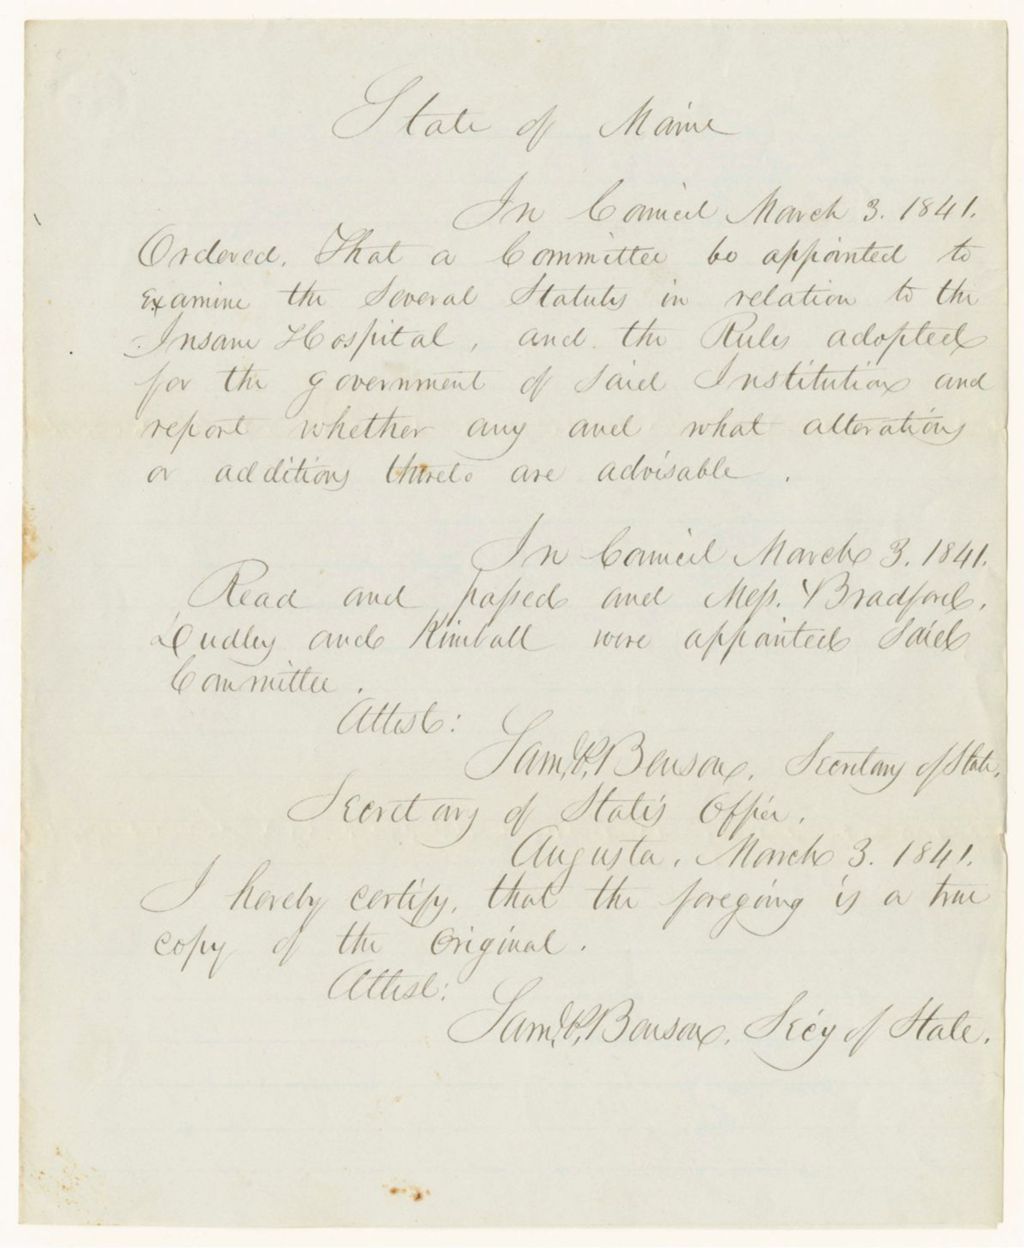 State of Maine
In Council March 3. 1841.
Ordered, That a Committee be appointed to
examine the several Statutes in relation to the
Insane Hospital, and the Rules adopted
for the government of said Institution and
report whether any and what alterations
or additions thereto are advisable.
In Council March 3. 1841.
Read and passed and Mess. Bradford,
Dudley and Kimball were appointed said
Committee.
Attest:
Saml. P. Benson, Secretary of State.
Secretary of State's Office,
Augusta, March 3. 1841.
I hereby certify, that the foregoing is a true
copy of the original.
Attest:
Saml. P. Benson, Sec'y of State.